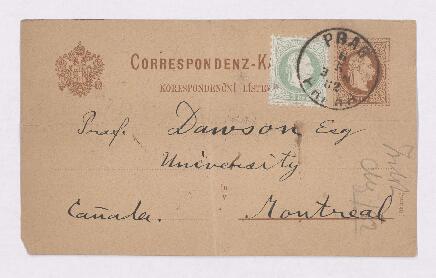 CORRESPONDENZ-KA
KORESPONDENČNÍ LÍSTEK
PRAG
Prof. Dawson Esq
University
Cañada. Montreal